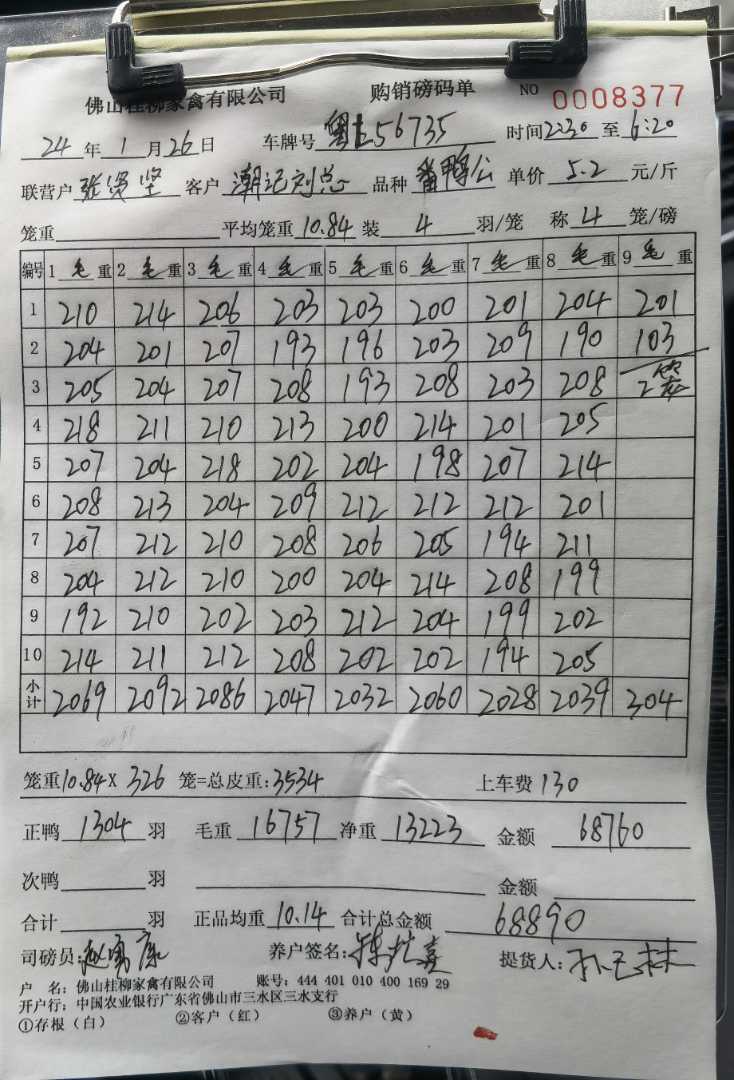 佛山桂柳家禽有限公司 购销磅码单 NO 0008377
24年1月26日 车牌号 粤E56735 时间2:30至6:20
联营户 张贤坚 客户 潮记刘总 品种 番鸭公 单价 5.2 元/斤
笼重 平均笼重 10.84 装 4 羽/笼 称 4 笼/磅
编号 1 毛 重 2 毛 重 3 毛 重 4 毛 重 5 毛 重 6 毛 重 7 毛 重 8 毛 重 9 毛 重
1 210 214 206 203 203 200 201 204 201
2 204 201 207 193 196 203 209 190 103
3 205 204 207 208 193 208 203 208 2笼
4 218 211 210 213 200 214 201 205
5 207 204 218 202 204 198 207 214
6 208 213 204 209 212 212 212 201
7 207 212 210 208 206 205 194 211
8 204 212 210 200 204 214 208 199
9 192 210 202 203 212 204 199 202
10 214 211 212 208 202 202 194 205
小计 2069 2092 2086 2047 2032 2060 2028 2039 304
笼重10.84× 326 笼=总皮重:3534 上车费130
正鸭 1304 羽 毛重 16757 净重 13223 金额 68760
次鸭 羽 金额
合计 羽 正品均重 10.14 合计总金额 68890
司磅员: 养户签名: 提货人:
户 名: 佛山桂柳家禽有限公司 账号: 444 401 010 400 169 29
开户行: 中国农业银行广东省佛山市三水区三水支行
①存根(白) ②客户(红) ③养户(黄)